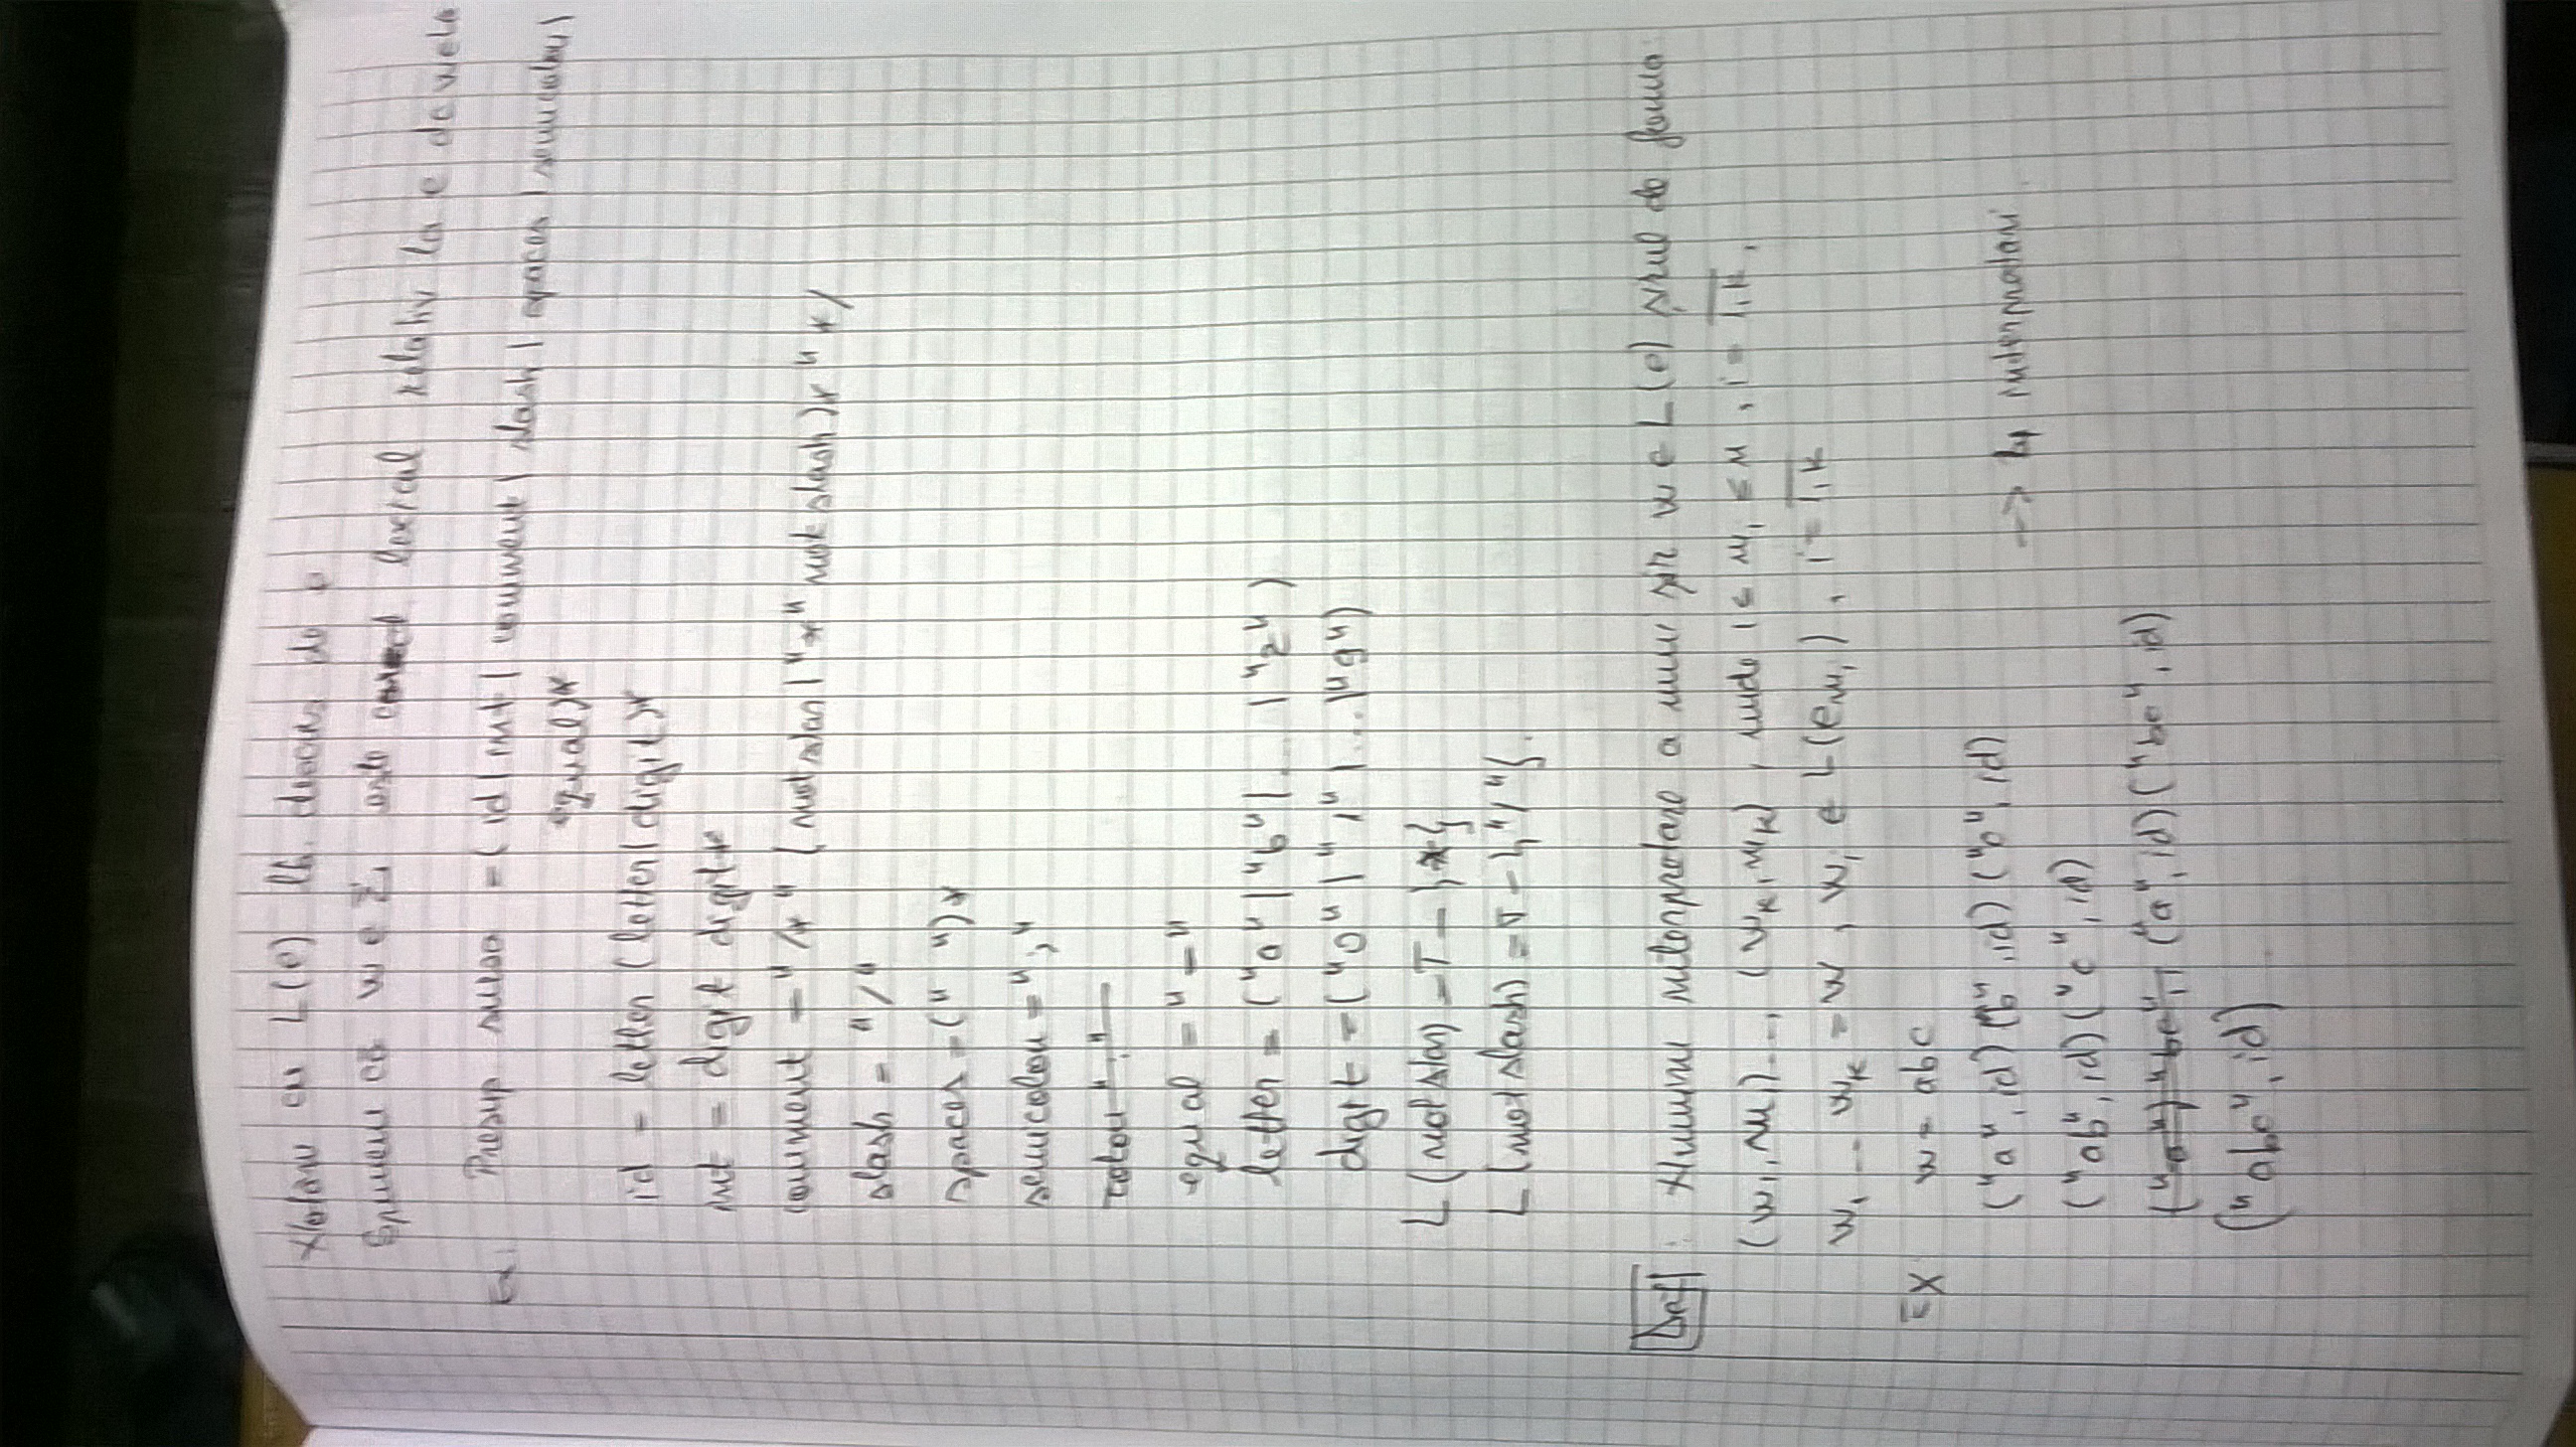 Notăm cu L(e) lb. descris de e
Spunem că w ∈ Σ, este corect lexical relativ la e
Ex: Presup sursa = (id | int | comment | slash | spaces | semicolon |
equal)*
id = letter (letter | digit)*
int = digit digit*
comment = "/*" (not star | "*" not slash)* "*/
slash = "/"
spaces = (" ")*
semicolon = ";"
colon ":"
equal = "="
letter = ("a" | "b" | ... | "z")
digit = ("0" | "1" | ... | "9")
L(not star) = T - {*}
L(not slash) = T - {"/"}.
Def: Numim interpretare a unui șir w ∈ L(e) șirul de forma
(w1, m1) ..., (wk, mk), unde 1 ≤ mi ≤ n, i = 1,k,
w1 ... wk = w, wi ∈ L(emi), i = 1,k
Ex w = abc
("a", id) ("b", id) ("c", id)
-> 4 interpretari
("ab", id) ("c", id)
("a") "bc", ("a", id) ("bc", id)
("abc", id)